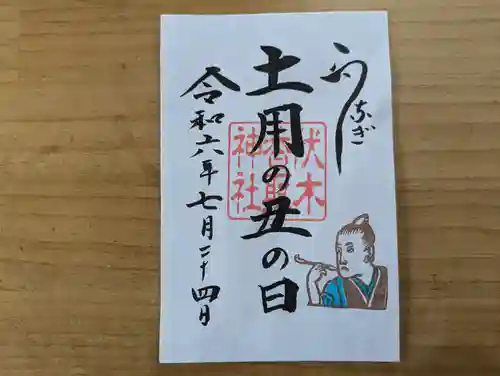 うなぎ
土用の丑の日
令和六年七月二十四日
伏木香取神社